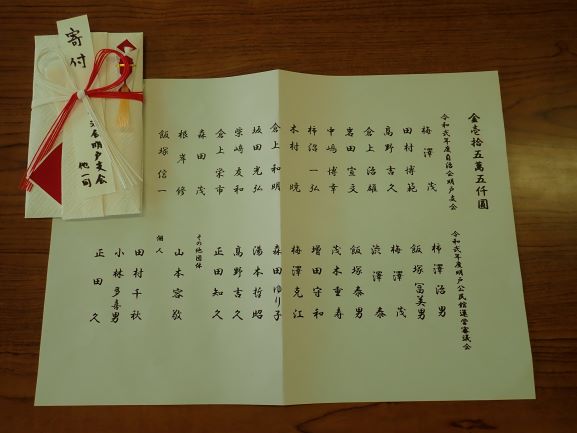 寄付
会明戸支会
他一同
金壱拾五萬五仟圓
令和弐年度自治会明戸支会
梅澤 茂
田村博範
高野吉久
倉上浩雄
岩田宣文
中嶋博幸
柿沼一弘
木村 暁
倉上和明
坂田光弘
柴﨑友和
倉上栄市
森田 茂
根岸 修
飯塚信一
令和弐年度明戸公民館運営審議会
柿澤治男
飯塚冨美男
梅澤 茂
渋澤 泰
飯塚泰男
茂木重寿
増田守和
梅澤克江
森田ゆり子
湯本哲昭
高野吉久
正田知久
その他団体
山本容敬
個人
田村千秋
小林多喜男
正田 久